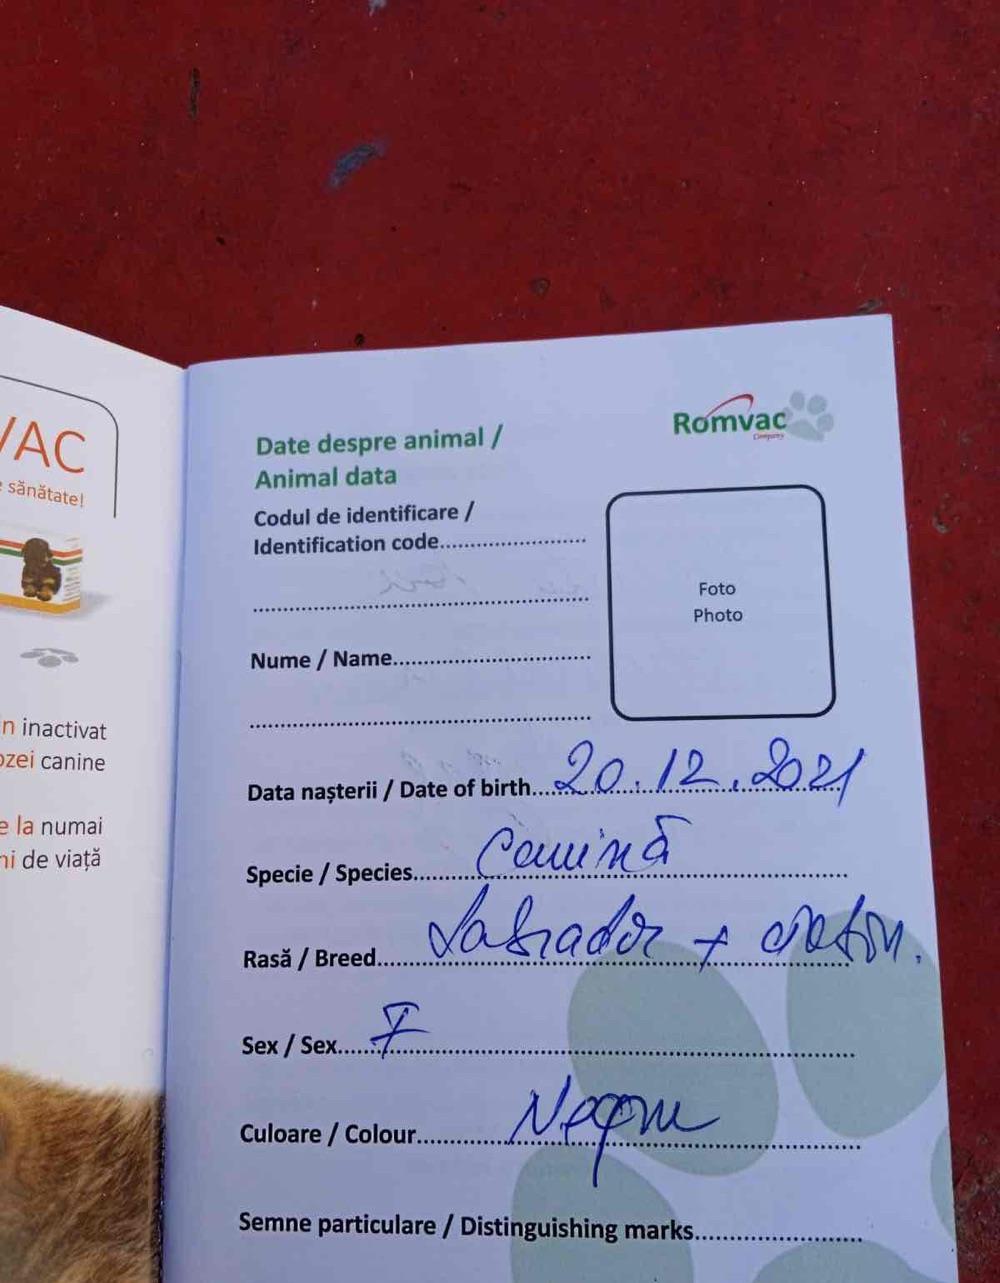 VAC
sănătate!
n inactivat
ozei canine
e la numai
ni de viață
Romvac
Company
Date despre animal /
Animal data
Codul de identificare /
Identification code
Foto
Photo
Nume / Name
Data nașterii / Date of birth 20.12.2021
Specie / Species Canină
Rasă / Breed Labrador +
Sex / Sex F
Culoare / Colour Negru
Semne particulare / Distinguishing marks